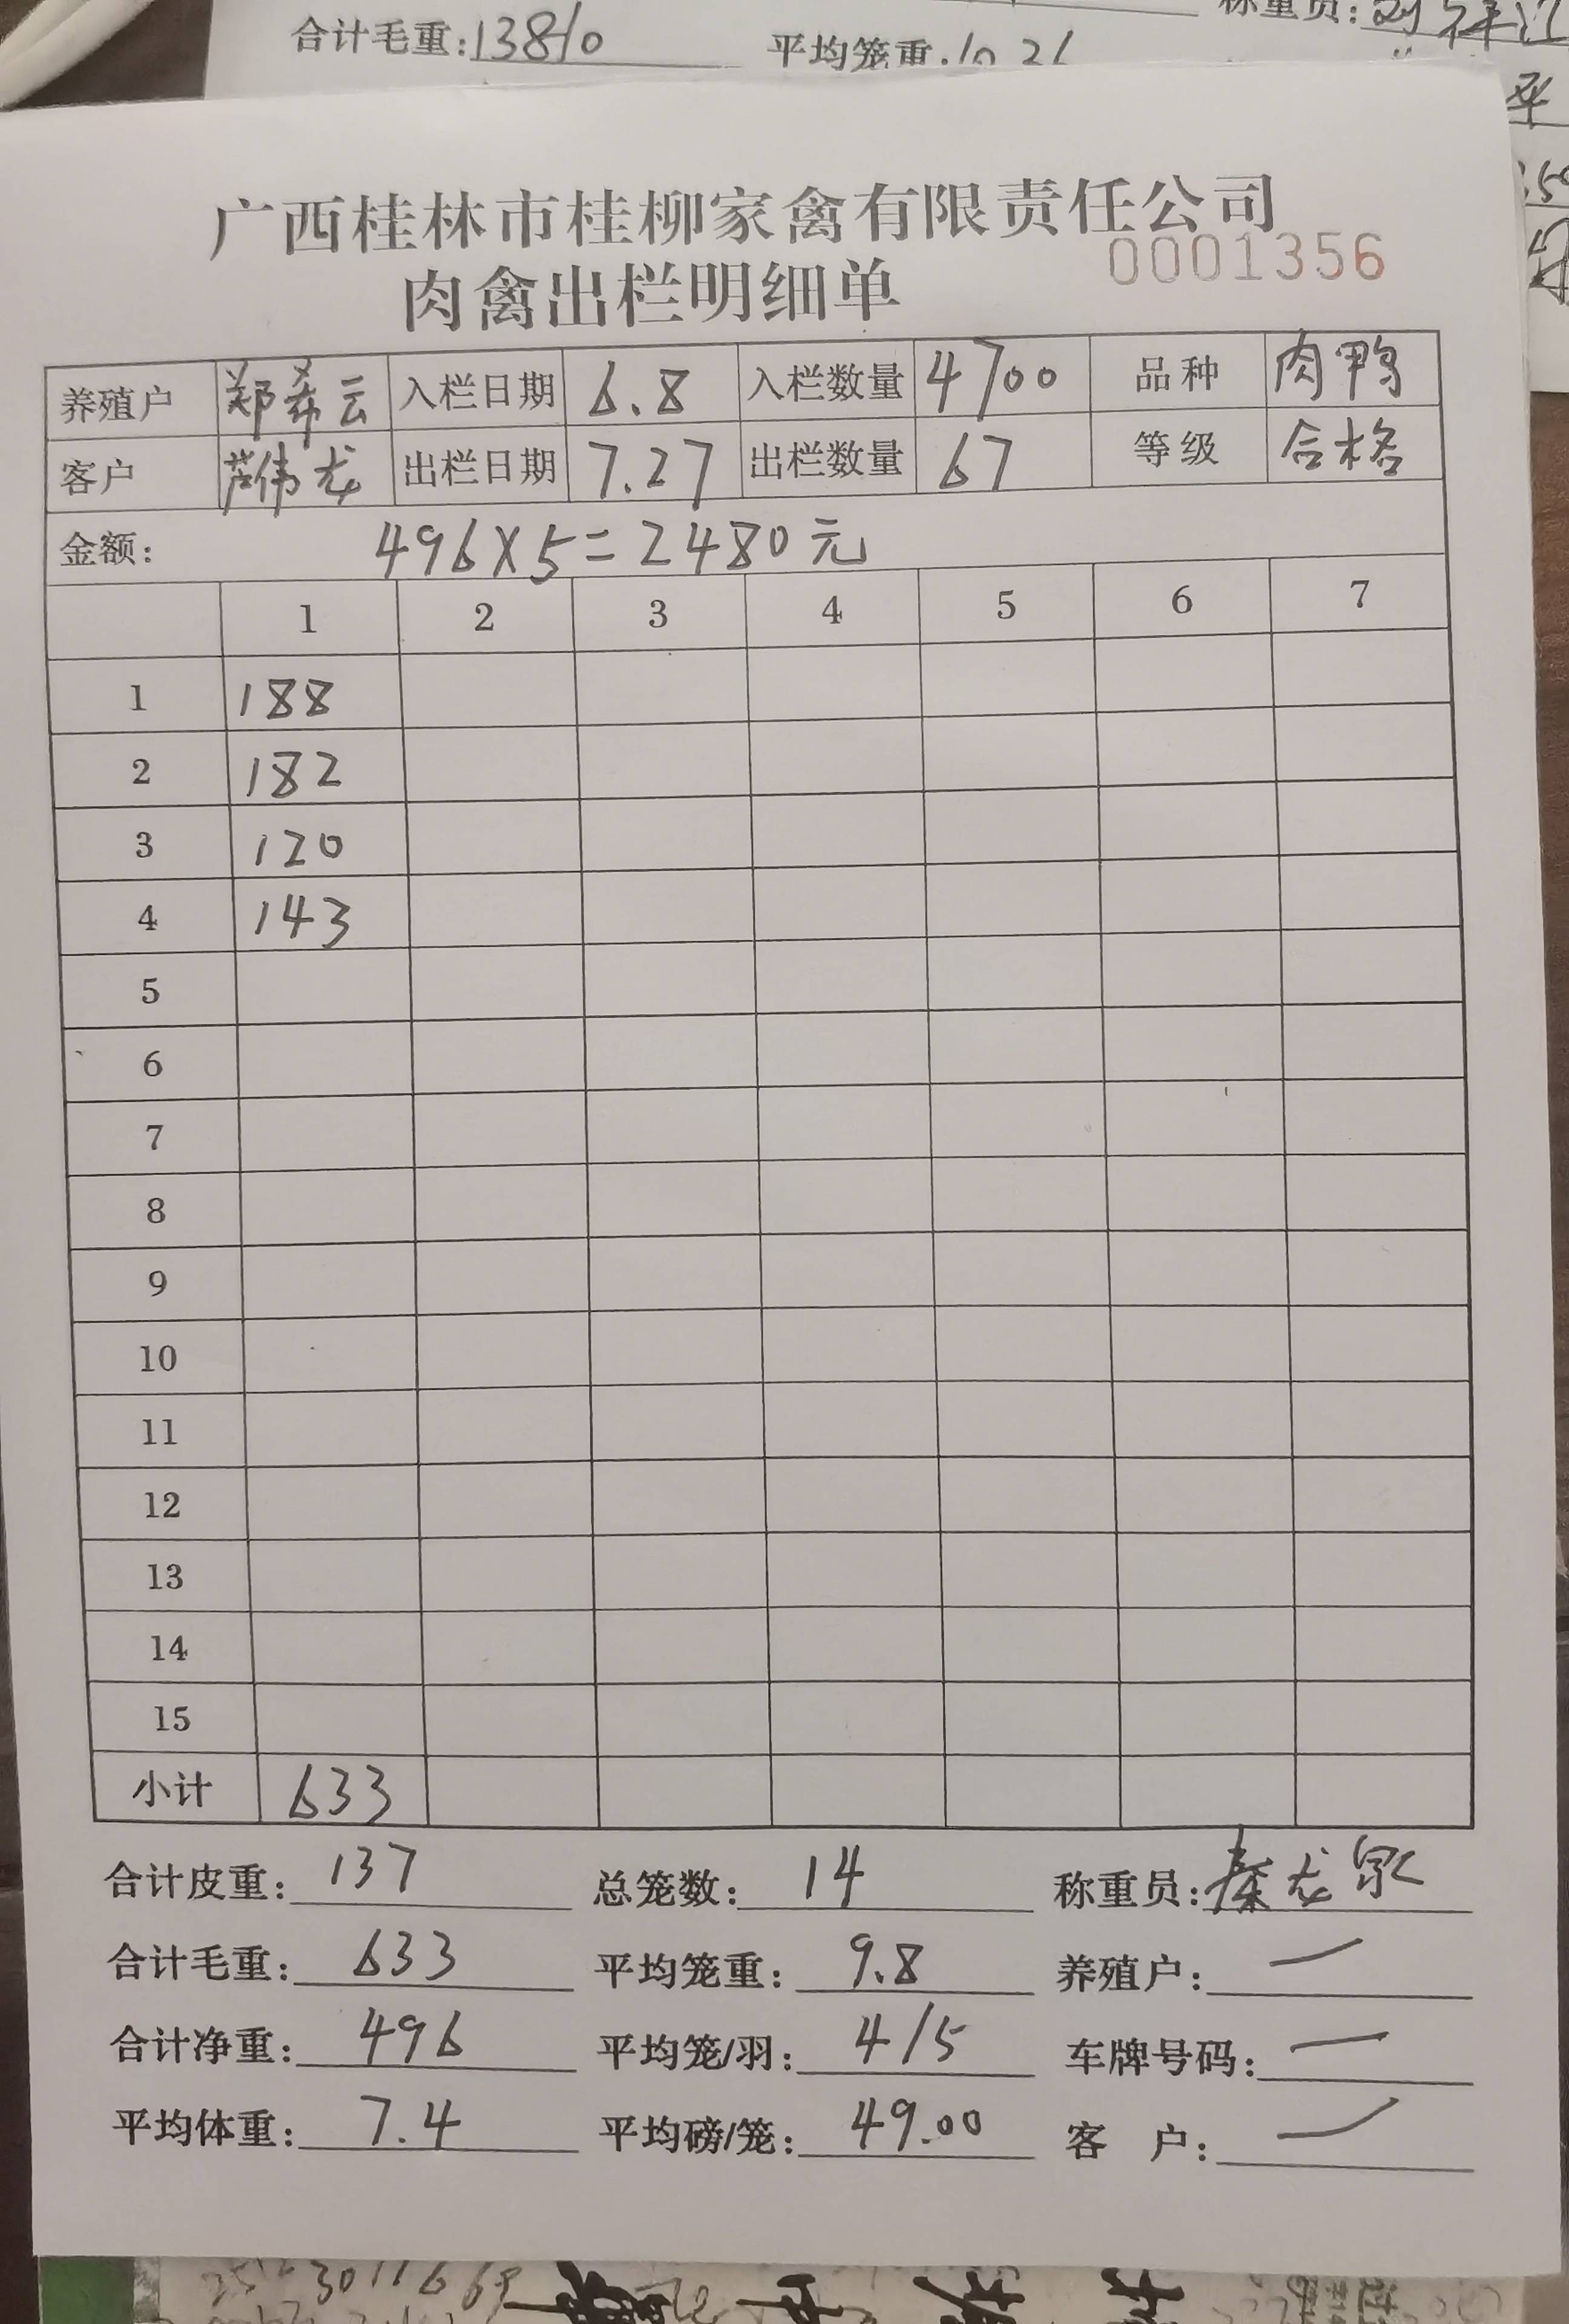 合计毛重:13810 平均笼重:10.21 称重员:
广西桂林市桂柳家禽有限责任公司
0001356
肉禽出栏明细单
养殖户 郑希云 入栏日期 6.8 入栏数量 4700 品种 肉鸭
客户 芦伟龙 出栏日期 7.27 出栏数量 67 等级 合格
金额: 496X5=2480元
1 2 3 4 5 6 7
1 188
2 182
3 120
4 143
5
6
7
8
9
10
11
12
13
14
15
小计 633
合计皮重: 137 总笼数: 14 称重员: 秦龙泉
合计毛重: 633 平均笼重: 9.8 养殖户: 一
合计净重: 496 平均笼/羽: 4/5 车牌号码: 一
平均体重: 7.4 平均磅/笼: 49.00 客 户: 一